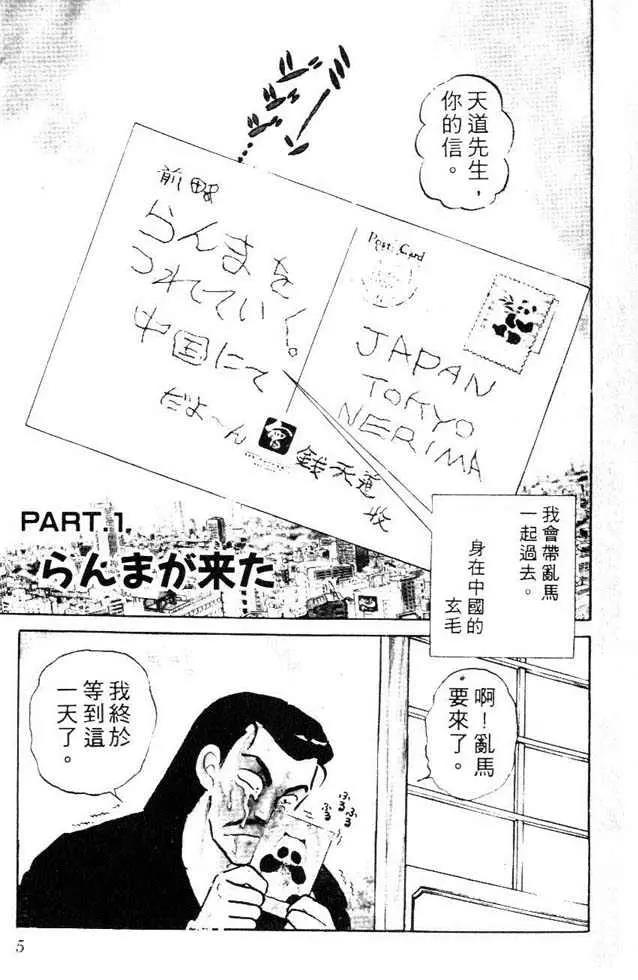 天道先生，
你的信。
前略
らんまを
つれていく。
中国にて
だよ～ん
Post Card
JAPAN
TOKYO
NERIMA
我會帶亂馬
一起過去。
身在中國的
玄毛
PART.1.
らんまが来た
啊！亂馬
要來了。
我終於
等到這
一天了。
ぶる
ぶる
ぶる
5